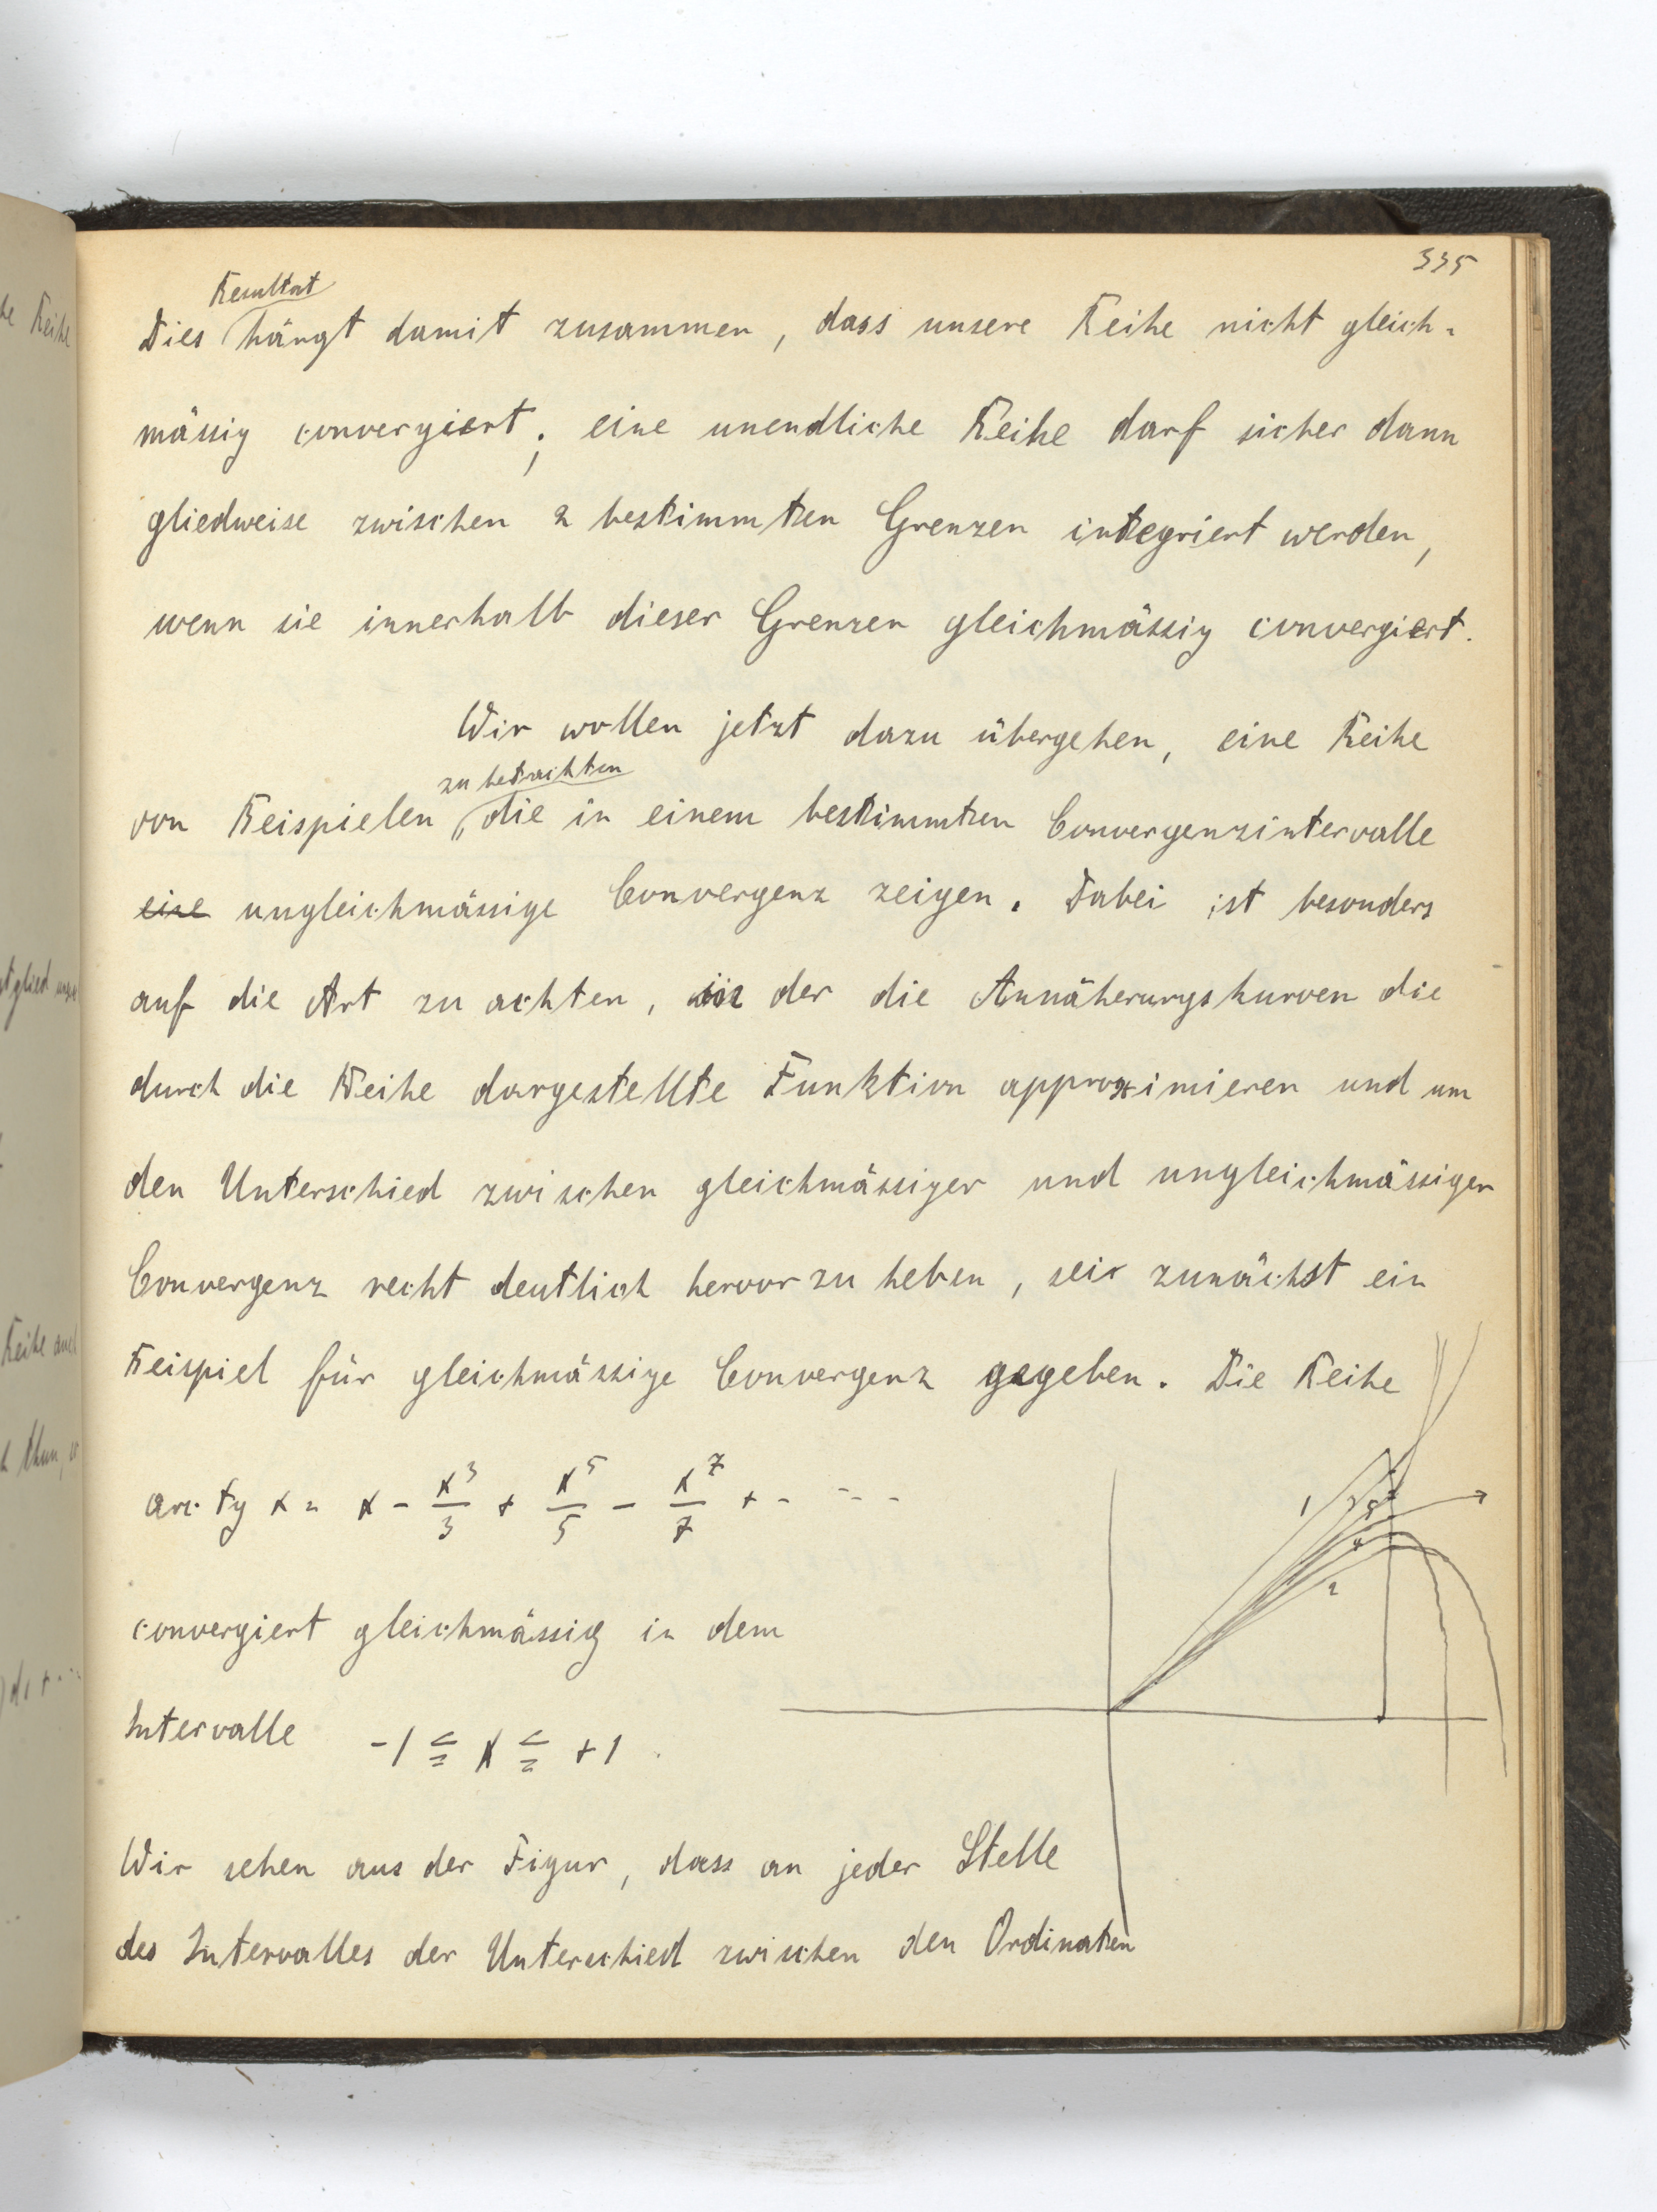 335
Resultat
Dies hängt damit zusammen, dass unsere Reihe nicht gleich=
mässig convergiert; eine unendliche Reihe darf sicher dann
gliedweise zwischen 2 bestimmten Grenzen integriert werden,
wenn sie innerhalb dieser Grenzen gleichmässig convergiert.
Wir wollen jetzt dazu übergehen, eine Reihe
zu betrachten
von Beispielen, die in einem bestimmten Convergenzintervalle
eine ungleichmässige Convergenz zeigen. Dabei ist besonders
auf die Art zu achten, in der die Annäherungskurven die
durch die Reihe dargestellte Funktion approximieren und um
den Unterschied zwischen gleichmässiger und ungleichmässiger
Convergenz recht deutlich hervorzuheben, sei zunächst ein
Beispiel für gleichmässige Convergenz gegeben. Die Reihe
arc tg x = x - x³/3 + x⁵/5 - x⁷/7 + - - - -
1 3 5 4 2
convergiert gleichmässig in dem
Intervalle -1 ≦ x ≦ +1.
Wir sehen aus der Figur, dass an jeder Stelle
des Intervalles der Unterschied zwischen den Ordinaten